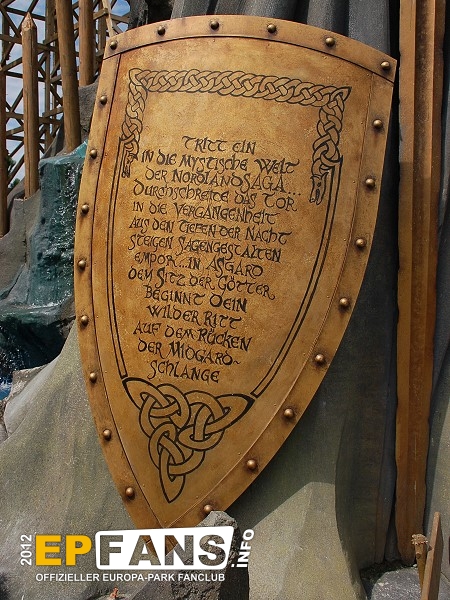 TRITT EIN
IN DIE MYSTISCHE WELT
DER NORDLANDSAGA...
DURCHSCHREITE DAS TOR
IN DIE VERGANGENHEIT
AUS DEN TIEFEN DER NACHT
STEIGEN SAGENGESTALTEN
EMPOR...IN ASGARD
DEM SITZ DER GÖTTER
BEGINNT DEIN
WILDER RITT
AUF DEM RÜCKEN
DER MIDGARD~
SCHLANGE
2012 EPFANS.INFO
OFFIZIELLER EUROPA-PARK FANCLUB